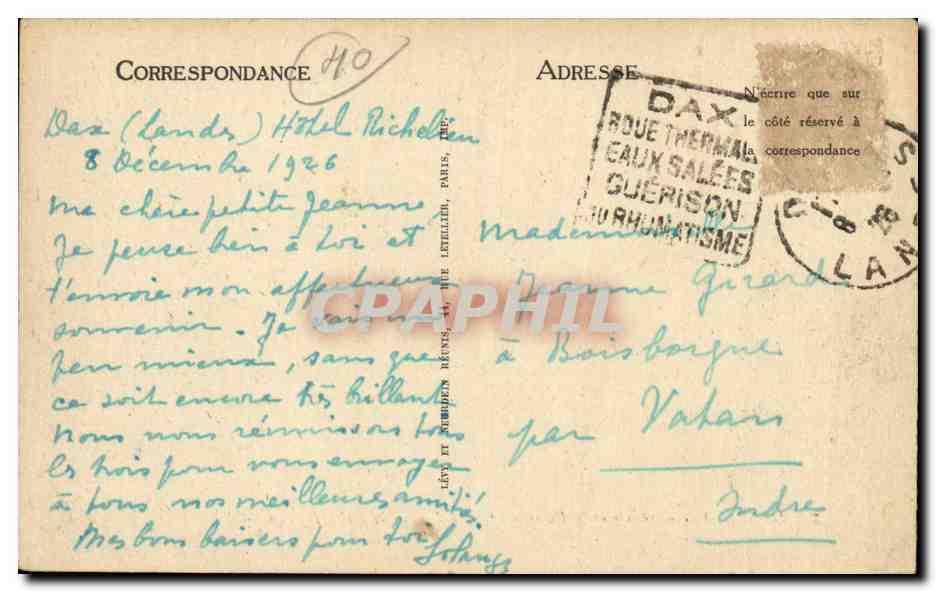 CORRESPONDANCE
40
Dax (Landes) Hôtel Richelieu
8 Décembre 1926
Ma chère petite Jeanne,
Je pense bien à toi et
t'envoie mon affectueux
souvenir. Je vais un
peu mieux, sans que
ce soit encore très brillant
Nous nous réunissons tous
les trois pour vous envoyer
à tous nos meilleures amitiés.
Mes bons baisers pour toi
Solange
LÉVY ET NEURDEIN RÉUNIS, 44, RUE LETELLIER, PARIS, IMP.
ADRESSE
N'écrire que sur
le côté réservé à
la correspondance
DAX
BOUE THERMALE
EAUX SALÉES
GUÉRISON
DU RHUMATISME
LAN
Mademoiselle
Jeanne Girard
à Boisborgne
par Vatan
Indre
CPAPHIL